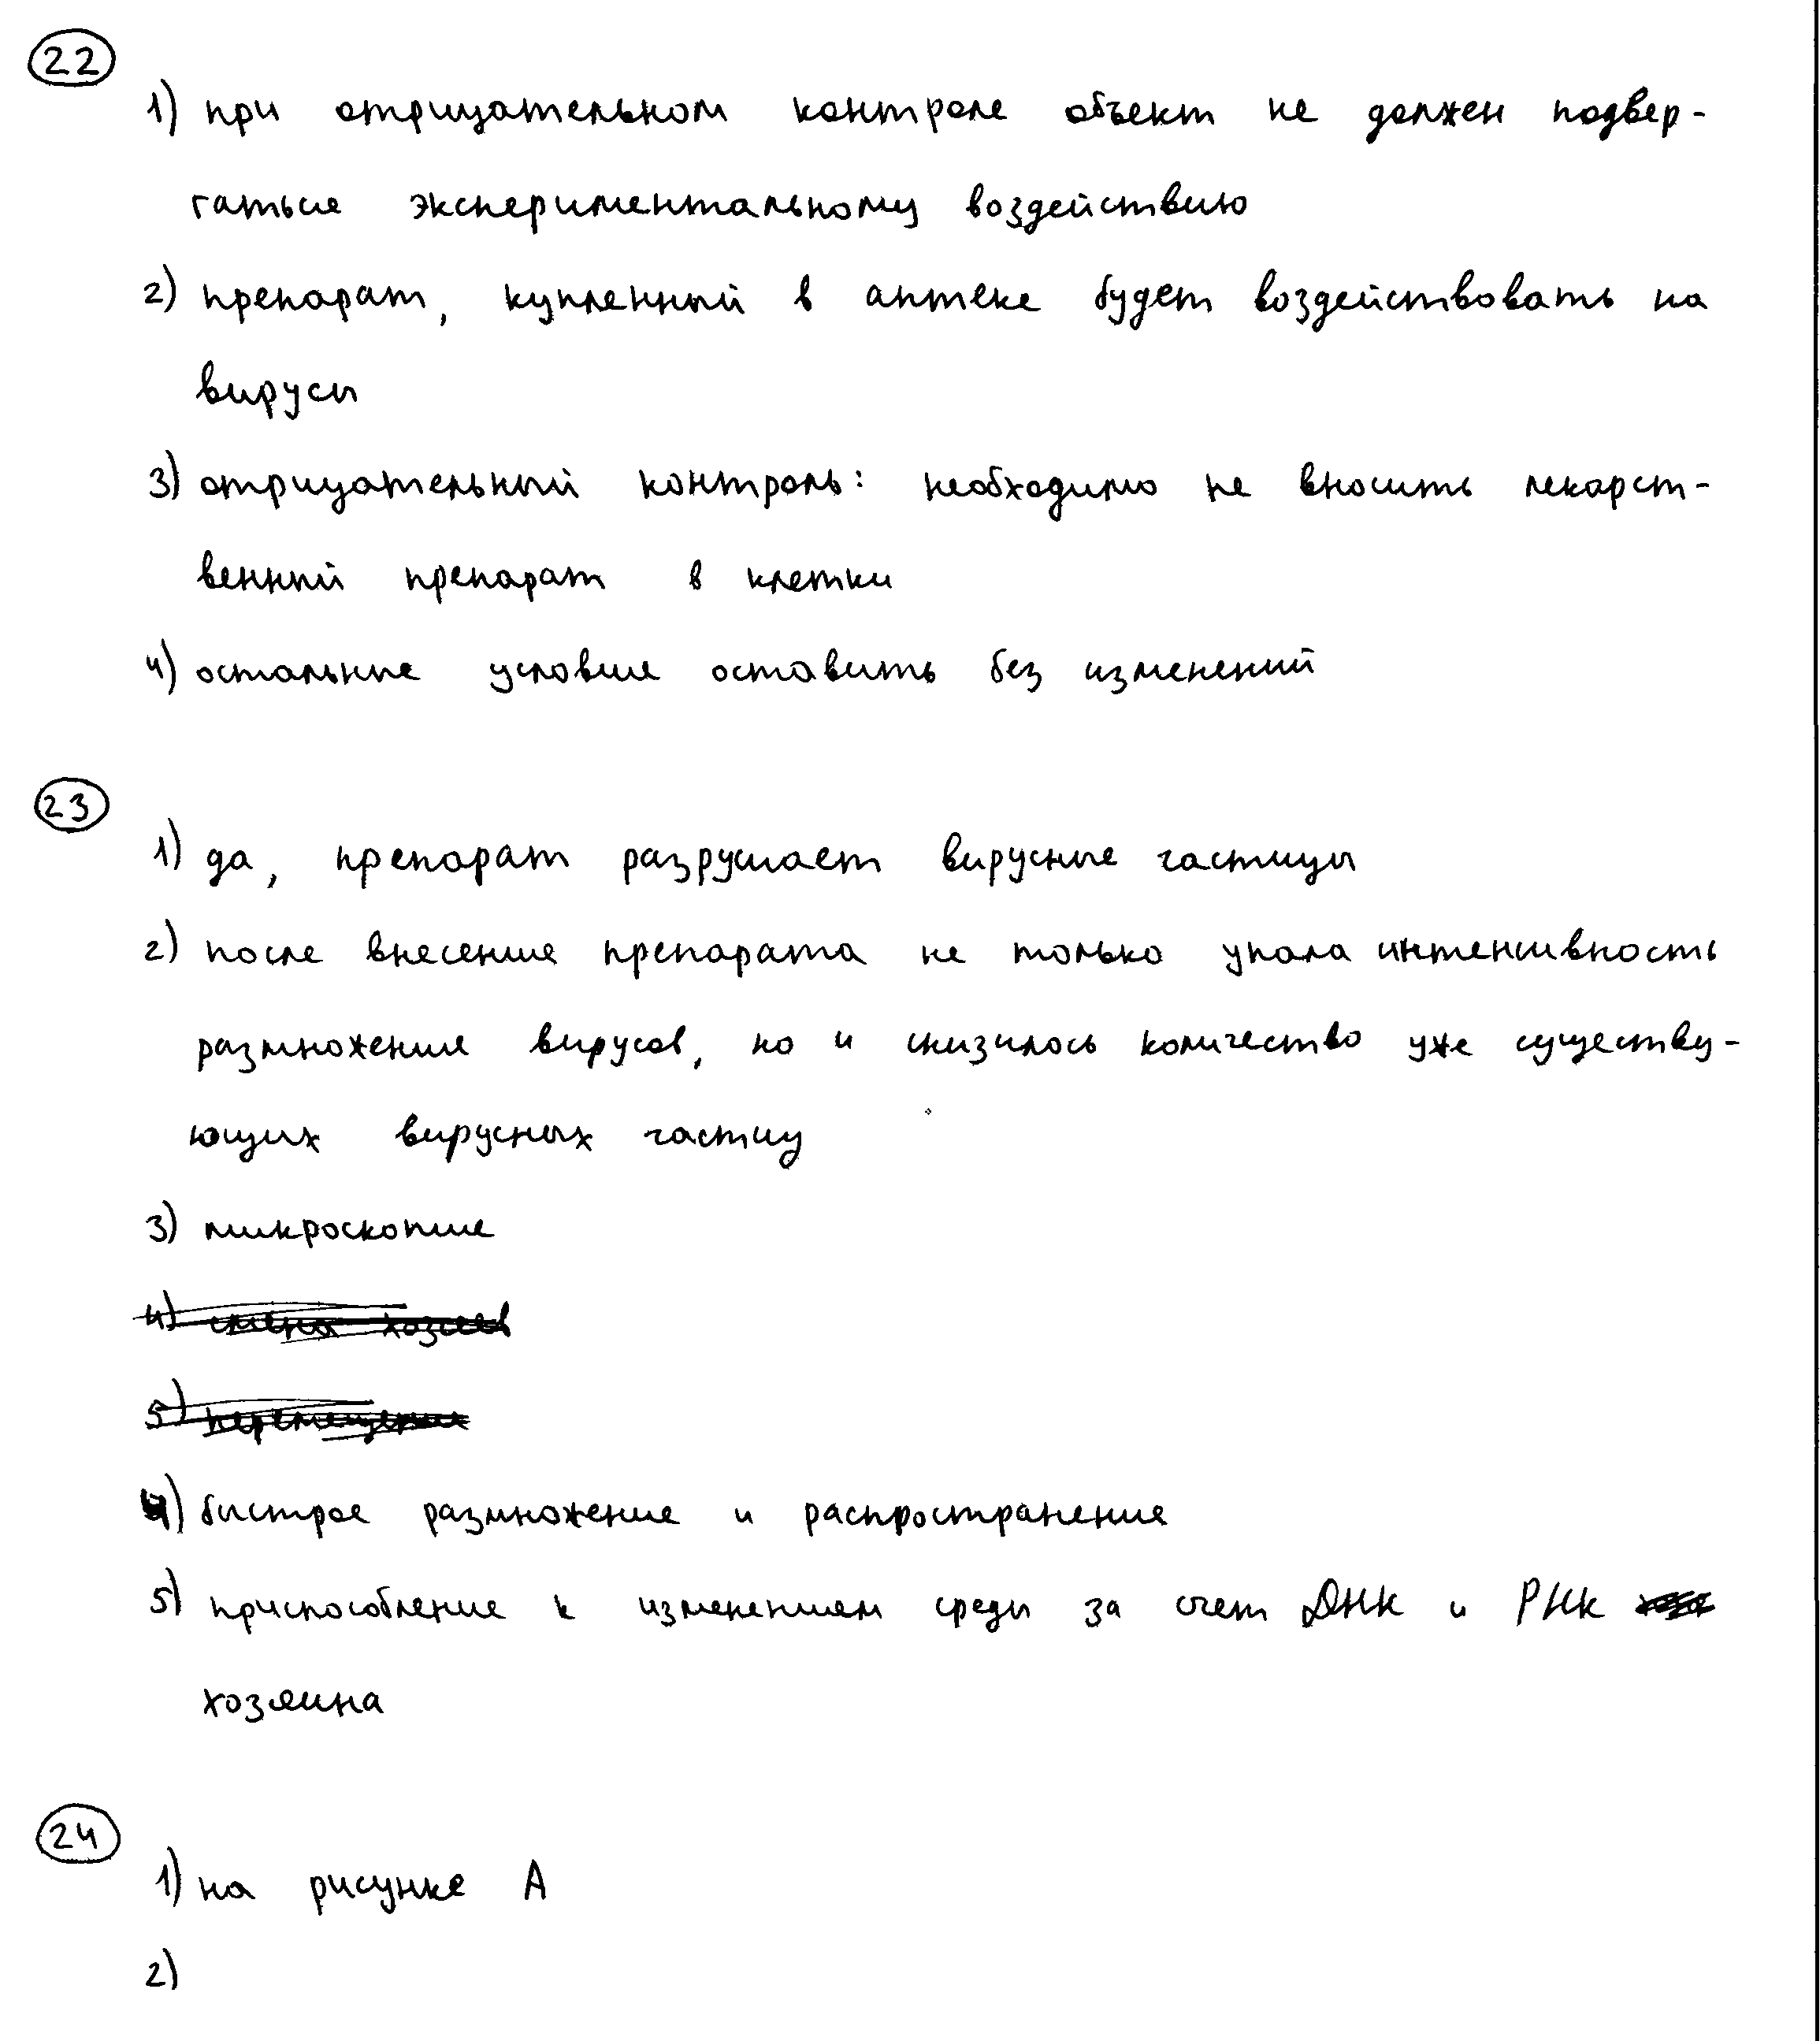 22
1) при отрицательном контроле объект не должен подвер-
гаться экспериментальному воздействию
2) препарат, купленный в аптеке будет воздействовать на
вирусы
3) отрицательный контроль: необходимо не вносить лекарст-
венный препарат в клетки
4) остальные условия оставить без изменений
23
1) да, препарат разрушает вирусные частицы
2) после внесения препарата не только упала интенсивность
размножения вирусов, но и снизилось количество уже существу-
ющих вирусных частиц
3) микроскопия
4) смена хозяев
5) перемещения
4) быстрое размножение и распространение
5) приспособление к изменениям среды за счет ДНК и РНК
хозяина
24
1) на рисунке А
2)